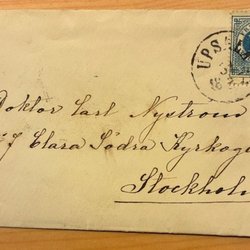 UPSALA
Doktor Carl Nyström
Clara Södra Kyrkog
Stockholm